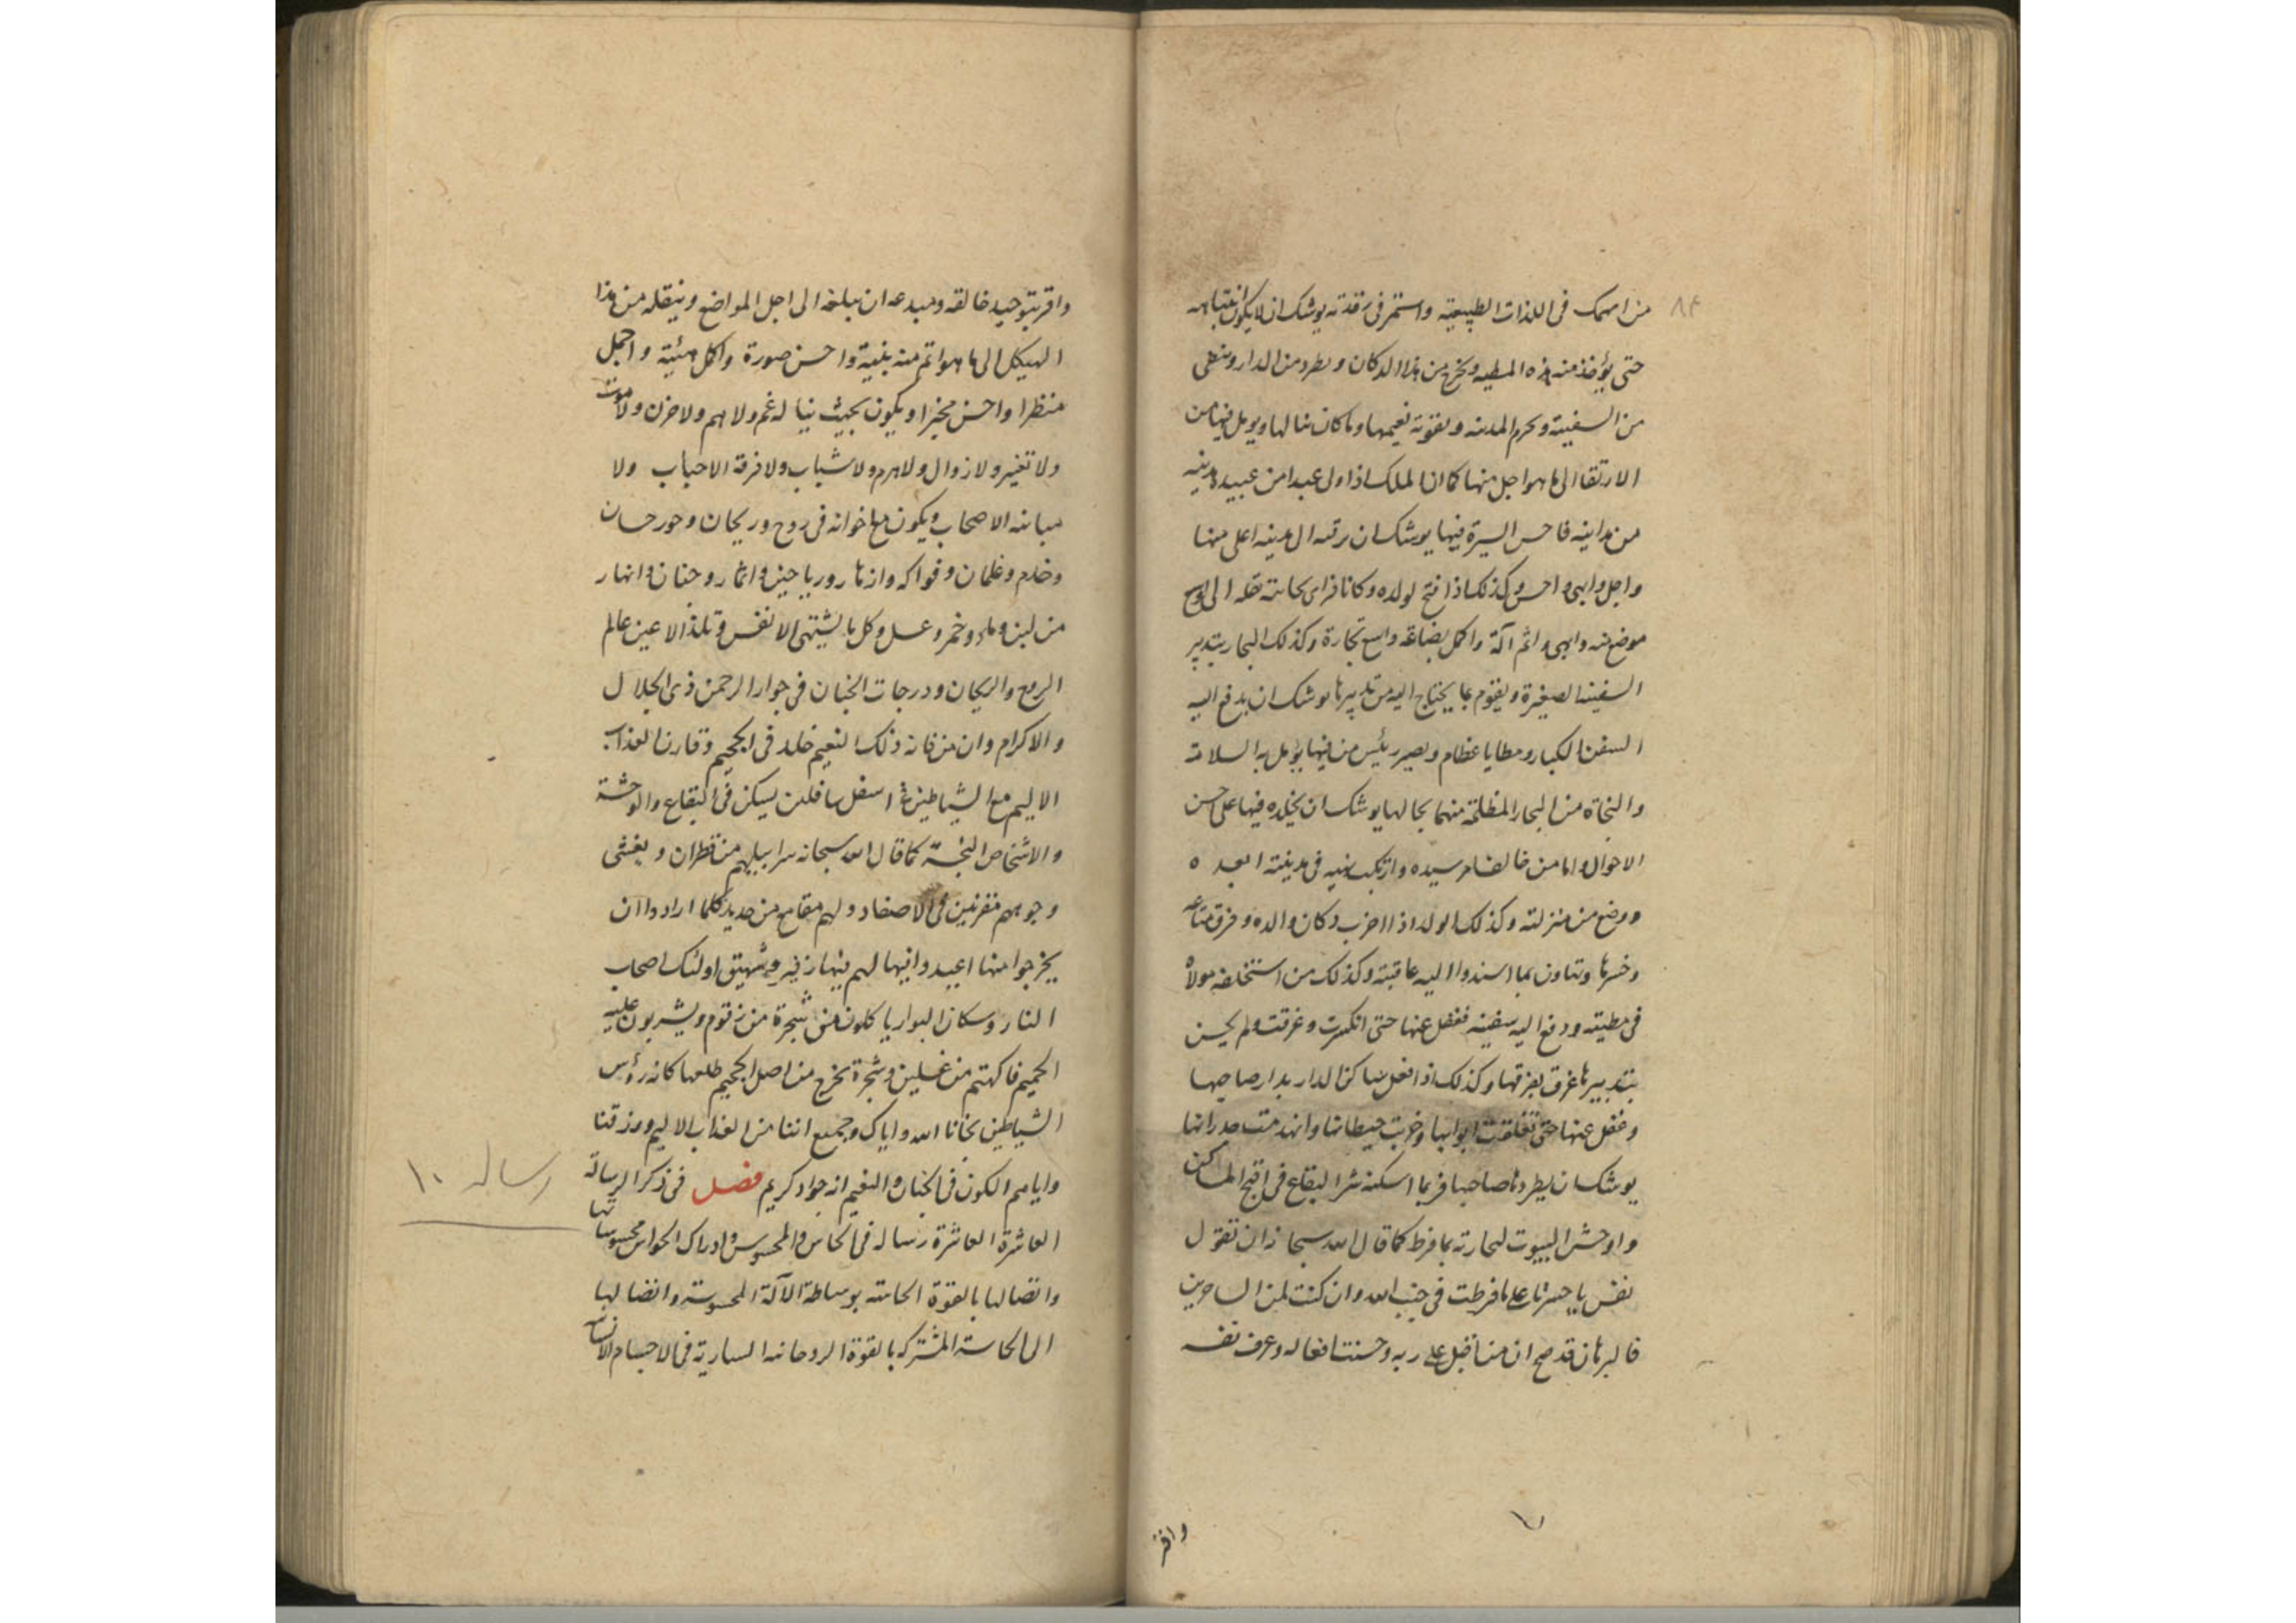 من انهمك فى اللذات الطبيعية واستمر فى رقدته يوشك ان لا يكون انتباهه
حتى يؤخذ منه هذه المطيه ويخرج من هذا الدكان ويطرد من الدار
من السفينة ويحرم المدينه نعيمها وما كان ينالها ويومل فيها من
الارتقا الى ما هو اجل منها كما ان الملك اذا ولى عبدا من عبيده مدينه
من مداينه فاحسن السيرة فيها يوشك ان يرقيه الى مدينه اعلى منها
واجل وابهى واحسن وكذلك اذا فتح لولده دكانا فراى نقله الى
موضع منه وابهى واتم آلة واكمل بضاعة واسع تجارة وكذلك البحار يتدبير
السفينه الصغيرة ويقوم بما يحتاج اليه من تدبيرها يوشك ان يدفع اليه
السفن الكبار ومطايا عظام ويصير رئيس من فيها يؤمل به السلامة
والنجاة من البحار المظلمة يوشك ان يخلده فيها على احسن
الاحوال واما من خالف امر سيده وارتكب نهيه فى مدينته ابعده
ووضع من منزلته وكذلك الولد اذا اخرب دكان والده وخرق متاعه
وخسرها وتهاون بما اسندوا اليه عاقبته وكذلك من استخلفه مولاه
فى مطيته ودفع اليه سفينه فغفل عنها حتى انكسرت وغرقت ولم يحسن
بتدبيرها غرق بغرقها وكذلك اذا فعل ساكن الدار بدار صاحبها
وغفل عنها حتى تغلقت ابوابها وخربت حيطانها وانهدمت جدرانها
يوشك ان يطرده صاحبها فربما اسكنه شر البقاع فى اقبح المساكن
واوحش البيوت بما فرط كما قال الله سبحانه ان تقول
نفس يا حسرتا على ما فرطت فى جنب الله وان كنت لمن الساخرين
فالبرهان قد صح ان من اقبل على ربه وحسنت افعاله وعرف نفسه
واقر
واقر بتوحيد خالقه ومبدعه ان يبلغه الى اجل المواضع وينقله من هذا
الهيكل الى ما هو اتم منه بنية واحسن صورة واكمل هيئية واجمل
منظرا واحسن مخبرا ويكون بحيث لا غم ولا هم ولا حزن ولا موت
ولا تغير ولا زوال ولا هرم ولا شباب ولا فرقة الاحباب ولا
مباينه الاصحاب ويكون مع اخوانه فى روح وريحان وحور حسان
وخدم وغلمان وفواكه وازهار ورياحين واثمار وجنان وانهار
من لبن وماء وخمر وعسل وكل ما يشتهى الانفس وتلذ الاعين عالم
الروح والريحان ودرجات الجنان فى جوار الرحمن ذى الجلال
والاكرام وان من فاته ذلك النعيم خلد فى الجحيم وقارن العذاب
الاليم مع الشياطين فى اسفل سافلين يسكن فى البقاع والوحشة
والاشخاص كما قال الله سبحانه سرابيلهم من قطران ويغشى
وجوههم مقرنين فى الاصفاد ولهم مقامع من حديد كلما ارادوا ان
يخرجوا منها اعيدوا فيها لهم فيها زفير وشهيق اولئك اصحاب
النار وسكان البوار ياكلون من شجرة من زقوم ويشربون عليه
الحميم فاكهتهم من غسلين وشجرة تخرج من اصل الجحيم طلعها كانه رؤس
الشياطين نجانا الله واياك وجميع اخواننا من العذاب الاليم ورزقنا
واياهم الكون فى الجنان والنعيم انه جواد كريم فصل فى ذكر الرسالة
العاشرة العاشرة رساله فى الحاس والمحسوس وادراك الحواس محسوساتها
واتصالها بالقوة الحاسه بوساطة الآلة المحسوسة واتصالها
الى الحاسة المشتركه بالقوة الروحانيه السارية فى الاجسام
رساله ١٠